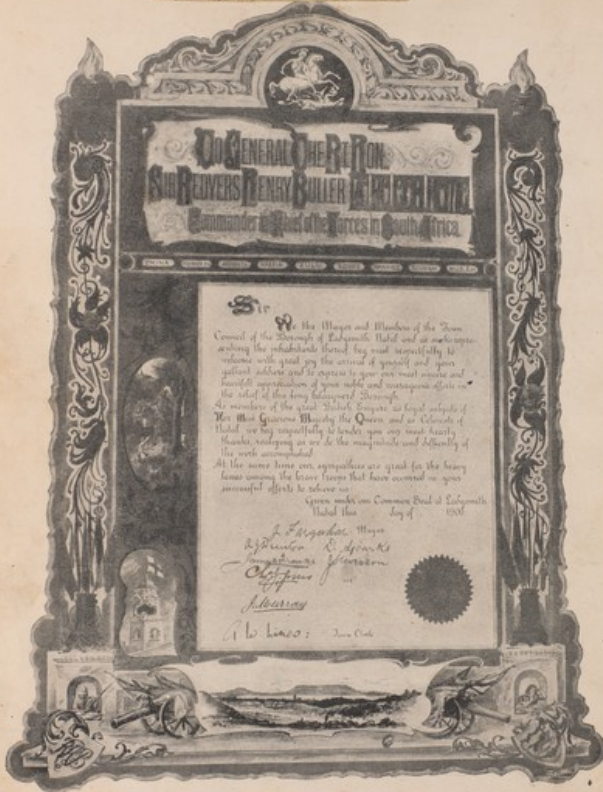 To General The Rt. Hon.
Sir Redvers Henry Buller
Commander in Chief of the Forces in South Africa.
Sir
We the Mayor and Members of the Town
Council of the Borough of Ladysmith Natal and as such repre-
senting the inhabitants thereof beg most respectfully to
welcome with great joy the arrival of yourself and your
gallant soldiers and to express to you our most sincere and
heartfelt appreciation of your noble and courageous efforts in
the relief of this long beleaguered Borough.
As members of the great British Empire as loyal subjects of
Her Most Gracious Majesty the Queen and as Colonists of
Natal we beg respectfully to tender you our most hearty
thanks, realizing as we do the magnitude and difficulty of
the work accomplished.
At the same time our sympathies are great for the heavy
losses among the brave troops that have occurred in your
successful efforts to relieve us.
Given under our Common Seal at Ladysmith
Natal this day of 1900.
J. Farquhar Mayor
D. Sparks
J. Murray
Town Clerk